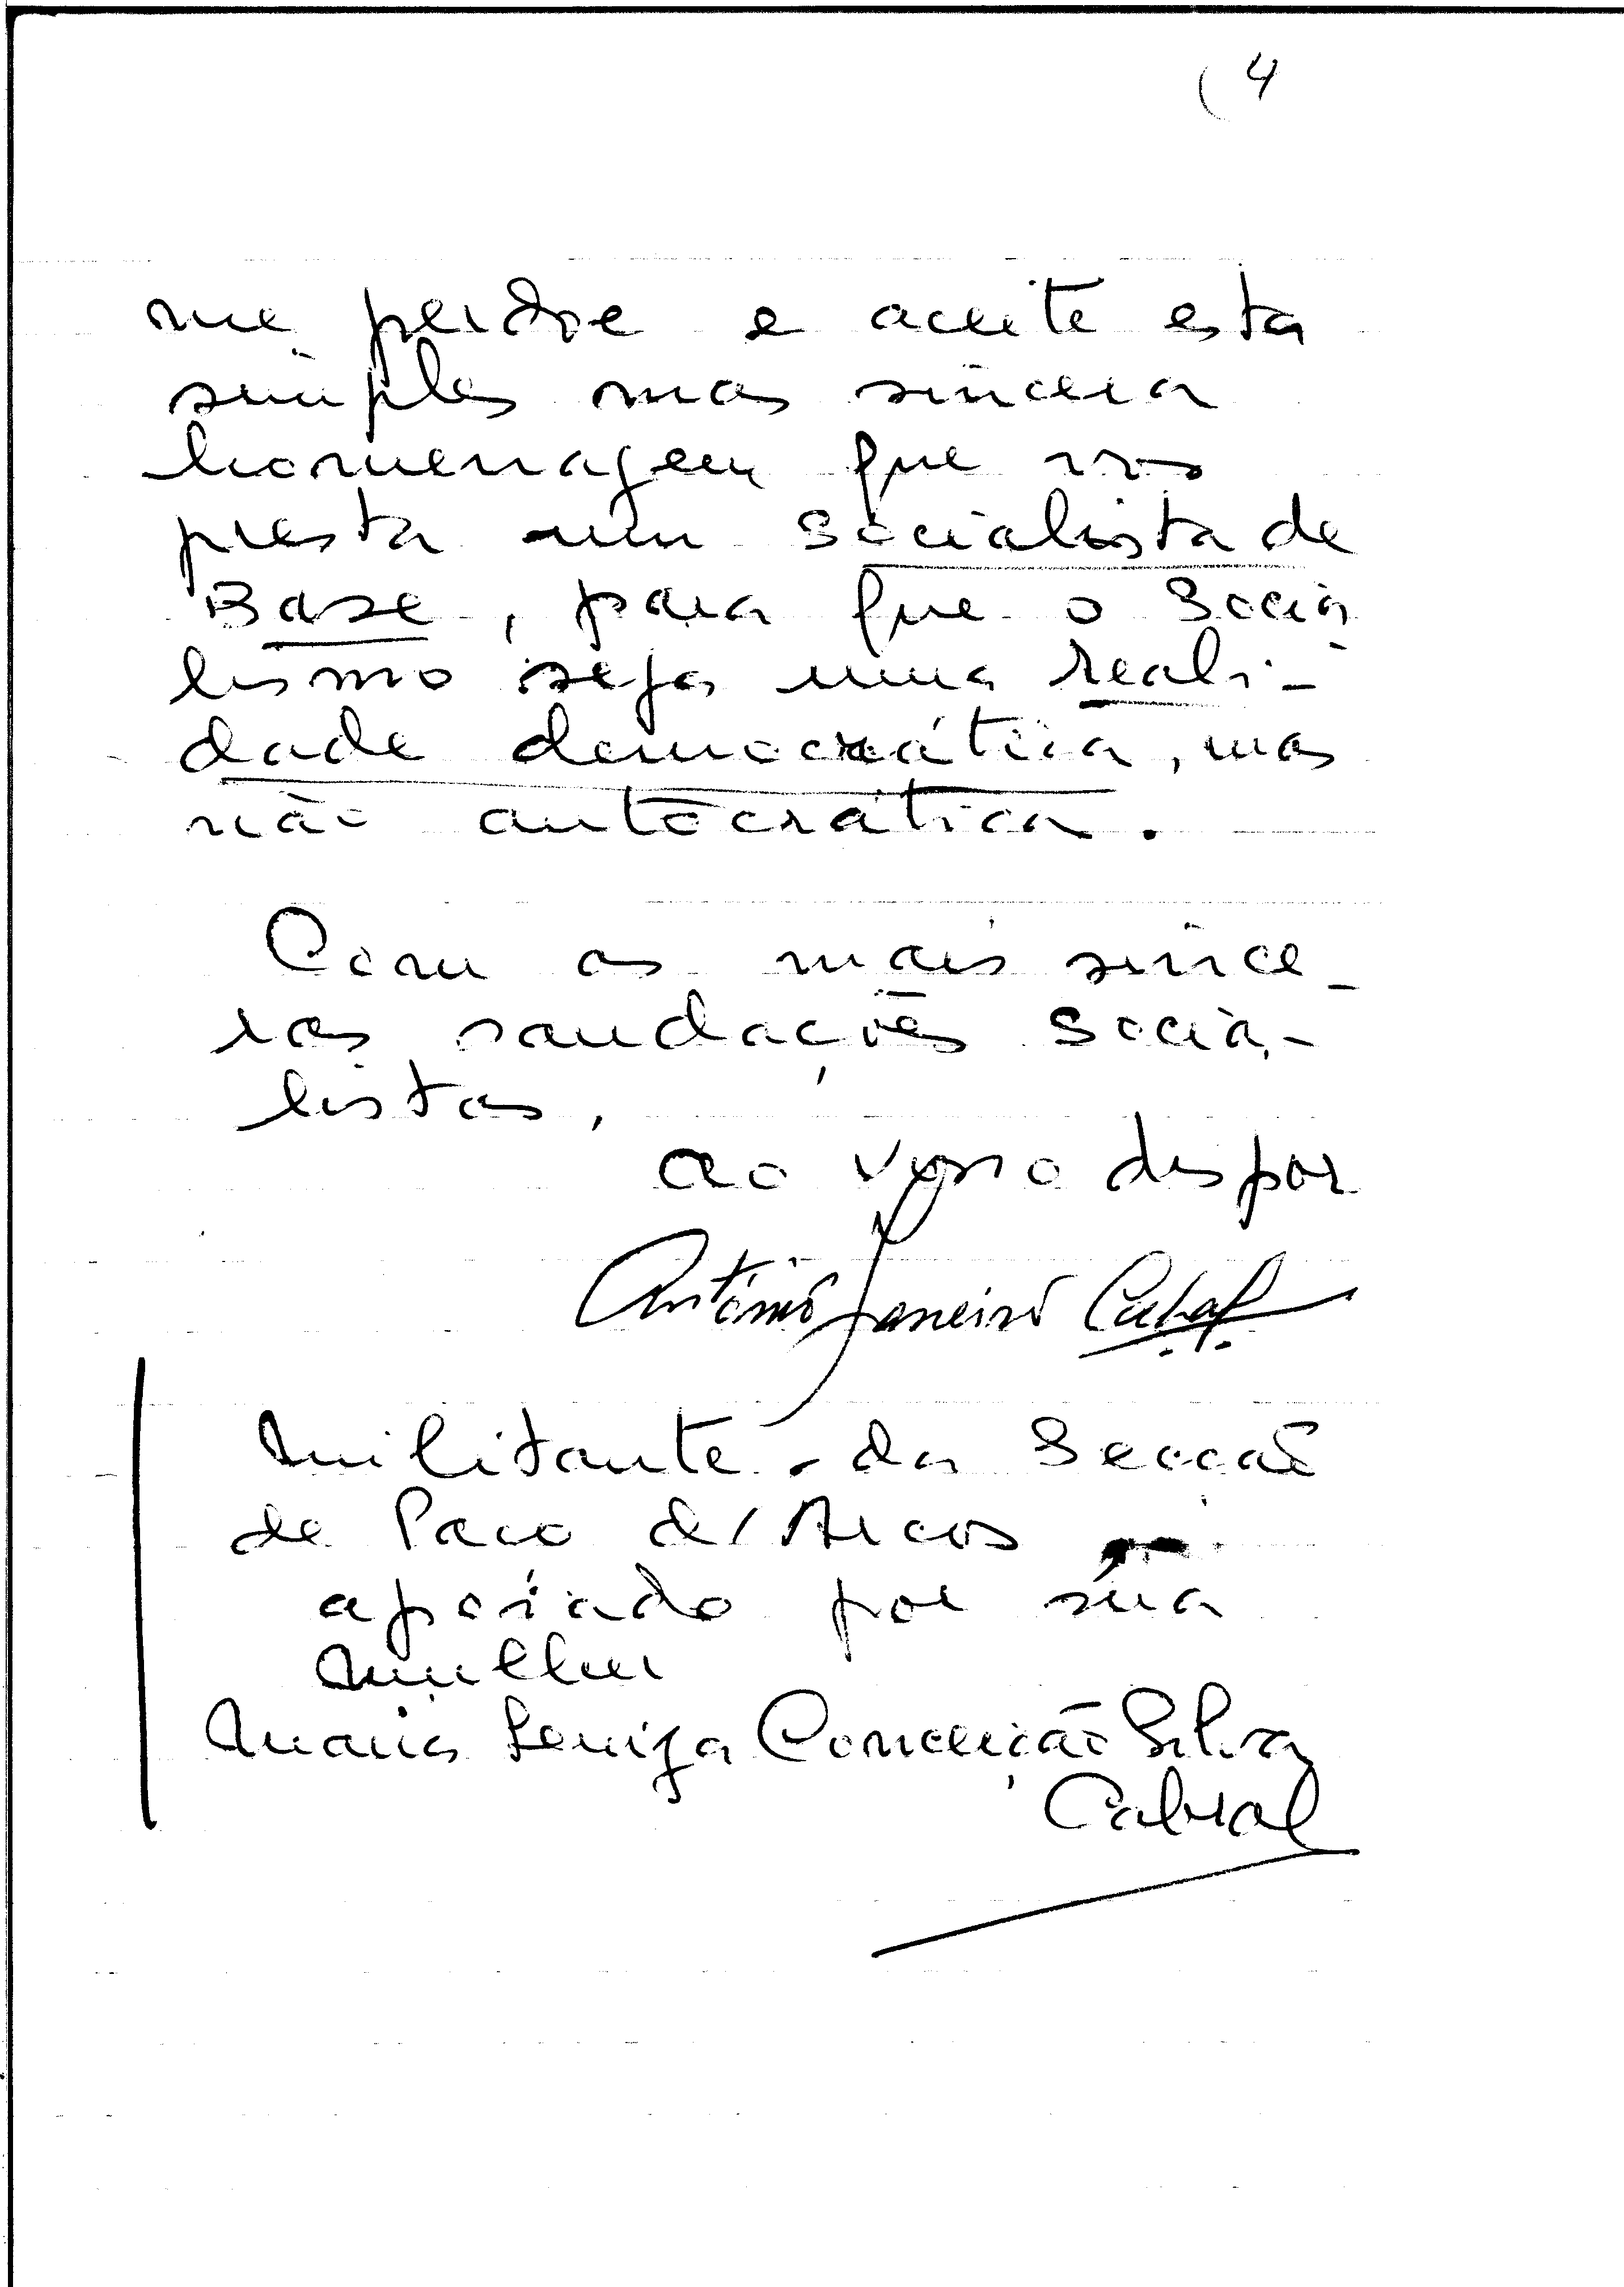 ( 4
me perdoe e aceite esta
simples mas sincera
homenagem que vos
presta um socialista de
Base, para que o socia
lismo seja uma reali-
dade democrática, mas
não autocrática.
Com as mais since-
ras saudações socia-
listas,
ao vosso dispor
António Janeiro Cabral
Militante da Secção
de Paço d'Arcos
apoiado por sua
Mulher
Maria Conceição Silva
Cabral